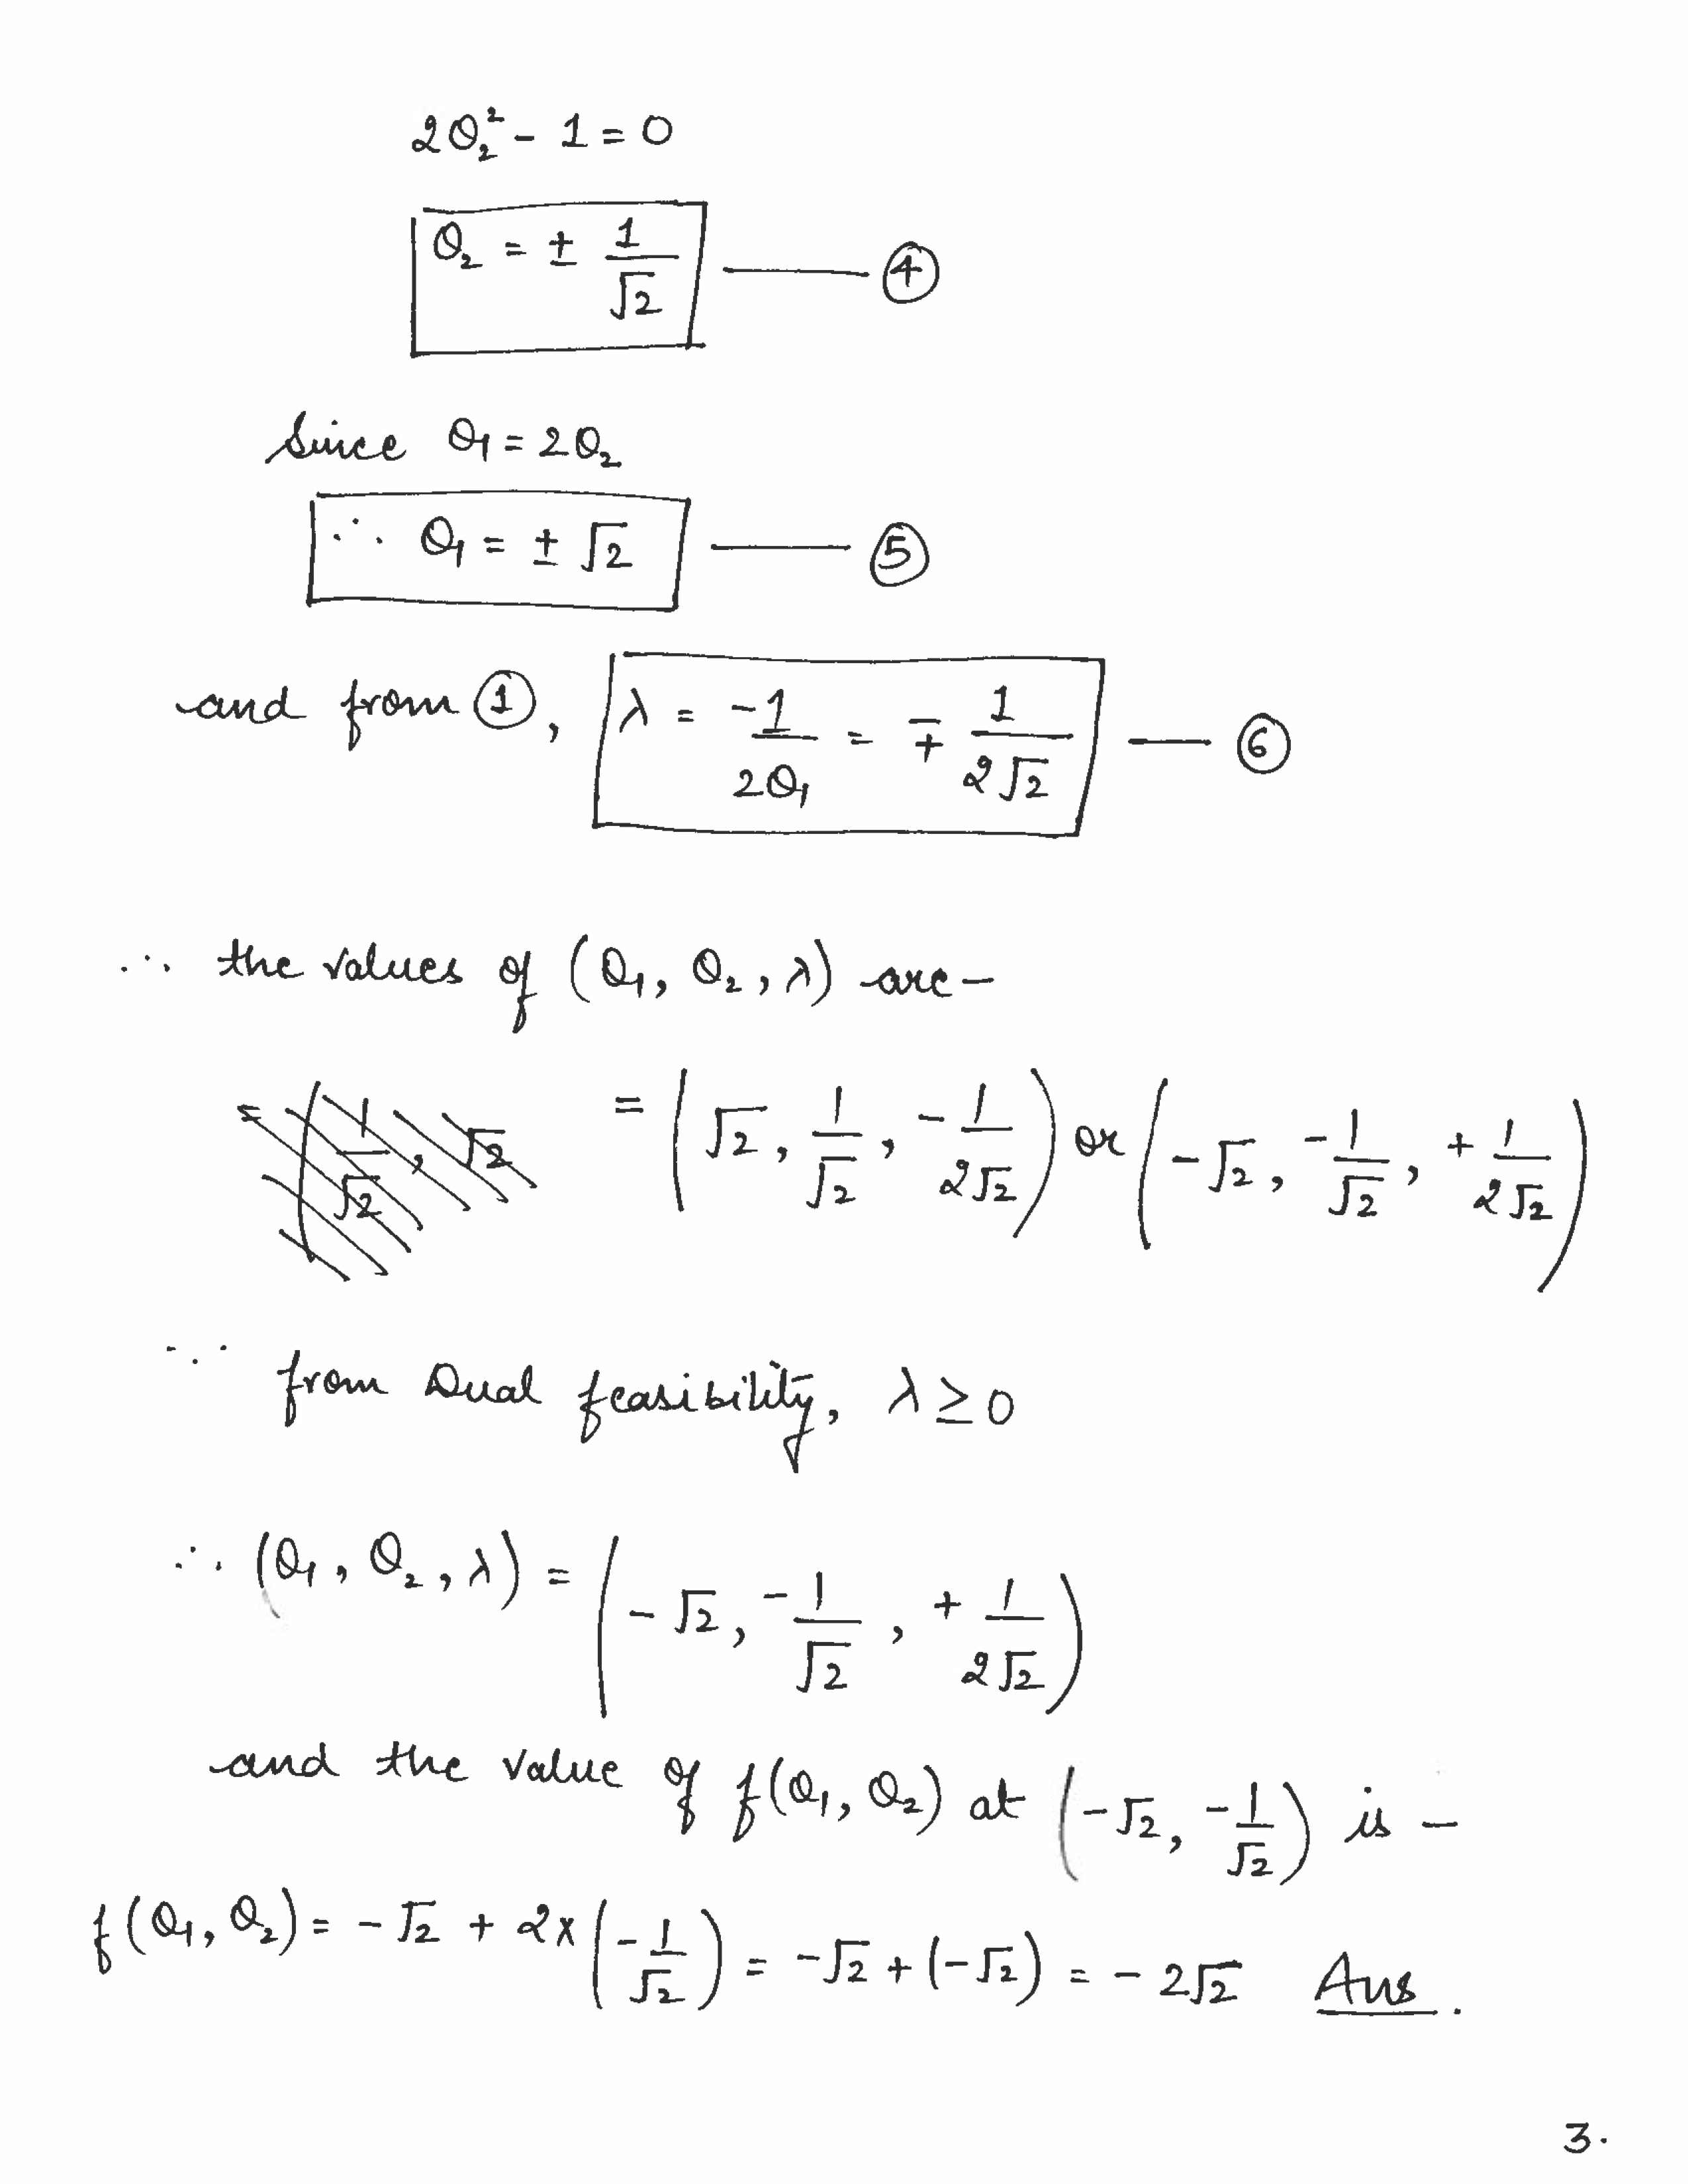 2θ₂² - 1 = 0
θ₂ = ± 1/√2 —— ④
Since θ₁ = 2θ₂
∴ θ₁ = ± √2 —— ⑤
and from ①, λ = -1/2θ₁ = ∓ 1/2√2 — ⑥
∴ the values of (θ₁, θ₂, λ) are -
= ( 1/√2 , √2 = ( √2, 1/√2, -1/2√2 ) or ( -√2, -1/√2, +1/2√2 )
∵ from Dual feasibility, λ ≥ 0
∴ (θ₁, θ₂, λ) = ( -√2, -1/√2, +1/2√2 )
and the value of f(θ₁, θ₂) at ( -√2, -1/√2 ) is -
f(θ₁, θ₂) = -√2 + 2× ( -1/√2 ) = -√2 + (-√2) = -2√2 Ans.
3.